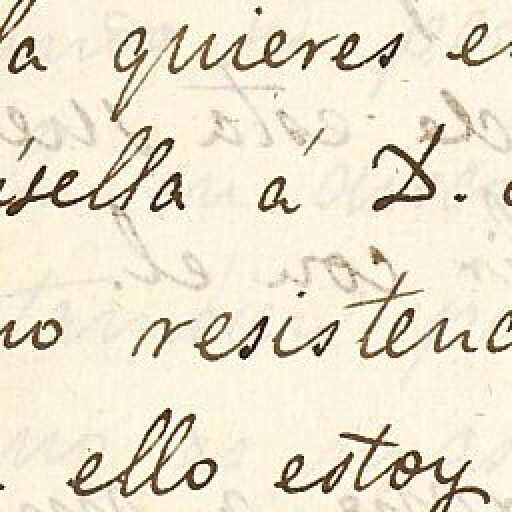 la quieres
ésella á D.
no resistenc
ello estoy